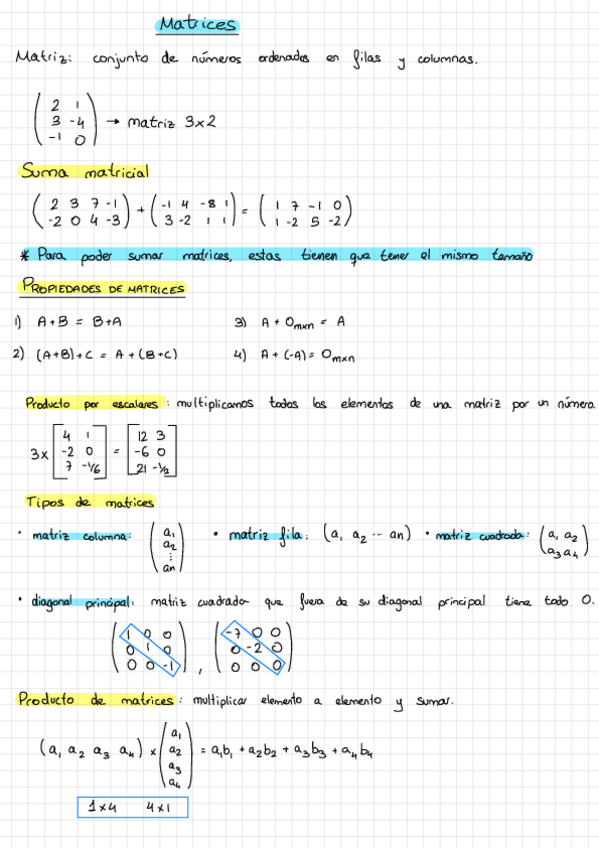 Matrices
Matriz: conjunto de números ordenados en filas y columnas.
( 2 1 ; 3 -4 ; -1 0 ) → matriz 3x2
Suma matricial
( 2 3 7 -1 ; -2 0 4 -3 ) + ( -1 4 -8 1 ; 3 -2 1 1 ) = ( 1 7 -1 0 ; 1 -2 5 -2 )
* Para poder sumar matrices, estas tienen que tener el mismo tamaño
PROPIEDADES DE MATRICES
1) A+B = B+A 3) A + Omxn = A
2) (A+B)+C = A+(B+C) 4) A+(-A) = Omxn
Producto por escalares: multiplicamos todos los elementos de una matriz por un número.
3x [ 4 1 ; -2 0 ; 7 -1/6 ] = [ 12 3 ; -6 0 ; 21 -1/2 ]
Tipos de matrices
· matriz columna: ( a1 ; a2 ; ⋮ ; an ) · matriz fila: (a1 a2 ... an) · matriz cuadrada: ( a1 a2 ; a3 a4 )
· diagonal principal: matriz cuadrada que fuera de su diagonal principal tiene todo 0.
( 1 0 0 ; 0 1 0 ; 0 0 -1 ) , ( -7 0 0 ; 0 -2 0 ; 0 0 0 )
Producto de matrices: multiplicar elemento a elemento y sumar.
(a1 a2 a3 a4) x ( a1 ; a2 ; a3 ; a4 ) = a1b1 + a2b2 + a3b3 + a4b4
1x4 4x1